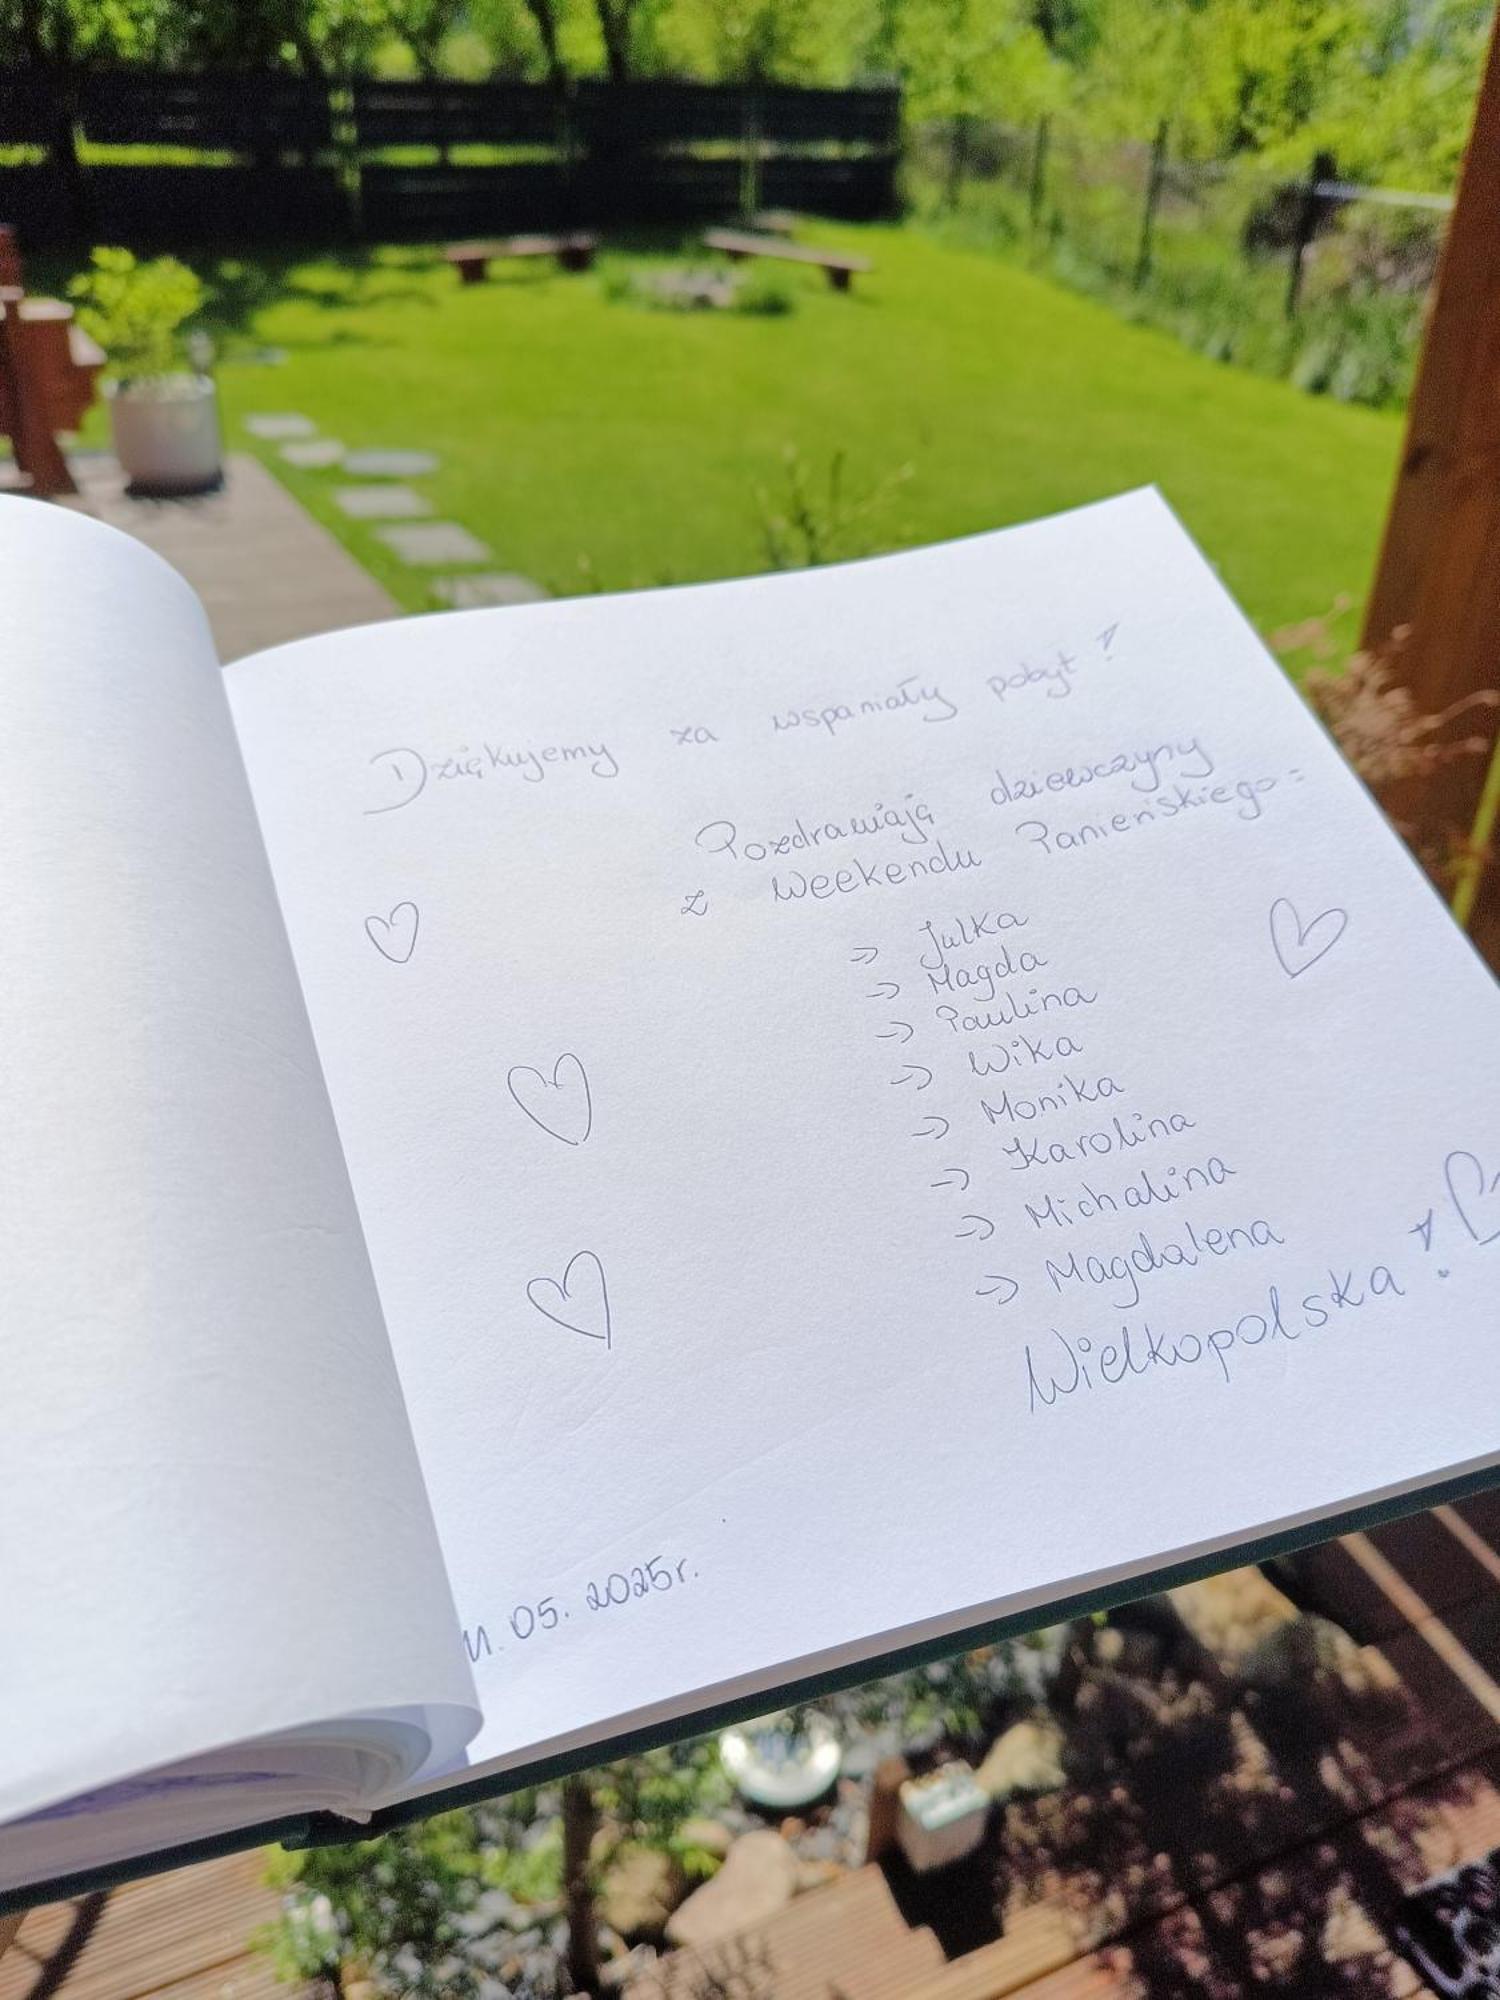 Dziękujemy za wspaniały pobyt!
Pozdrawiają dziewczyny
z Weekendu Panieńskiego:
-> Julka
-> Magda
-> Paulina
-> Wika
-> Monika
-> Karolina
-> Michalina
-> Magdalena
Wielkopolska!
11.05.2025r.